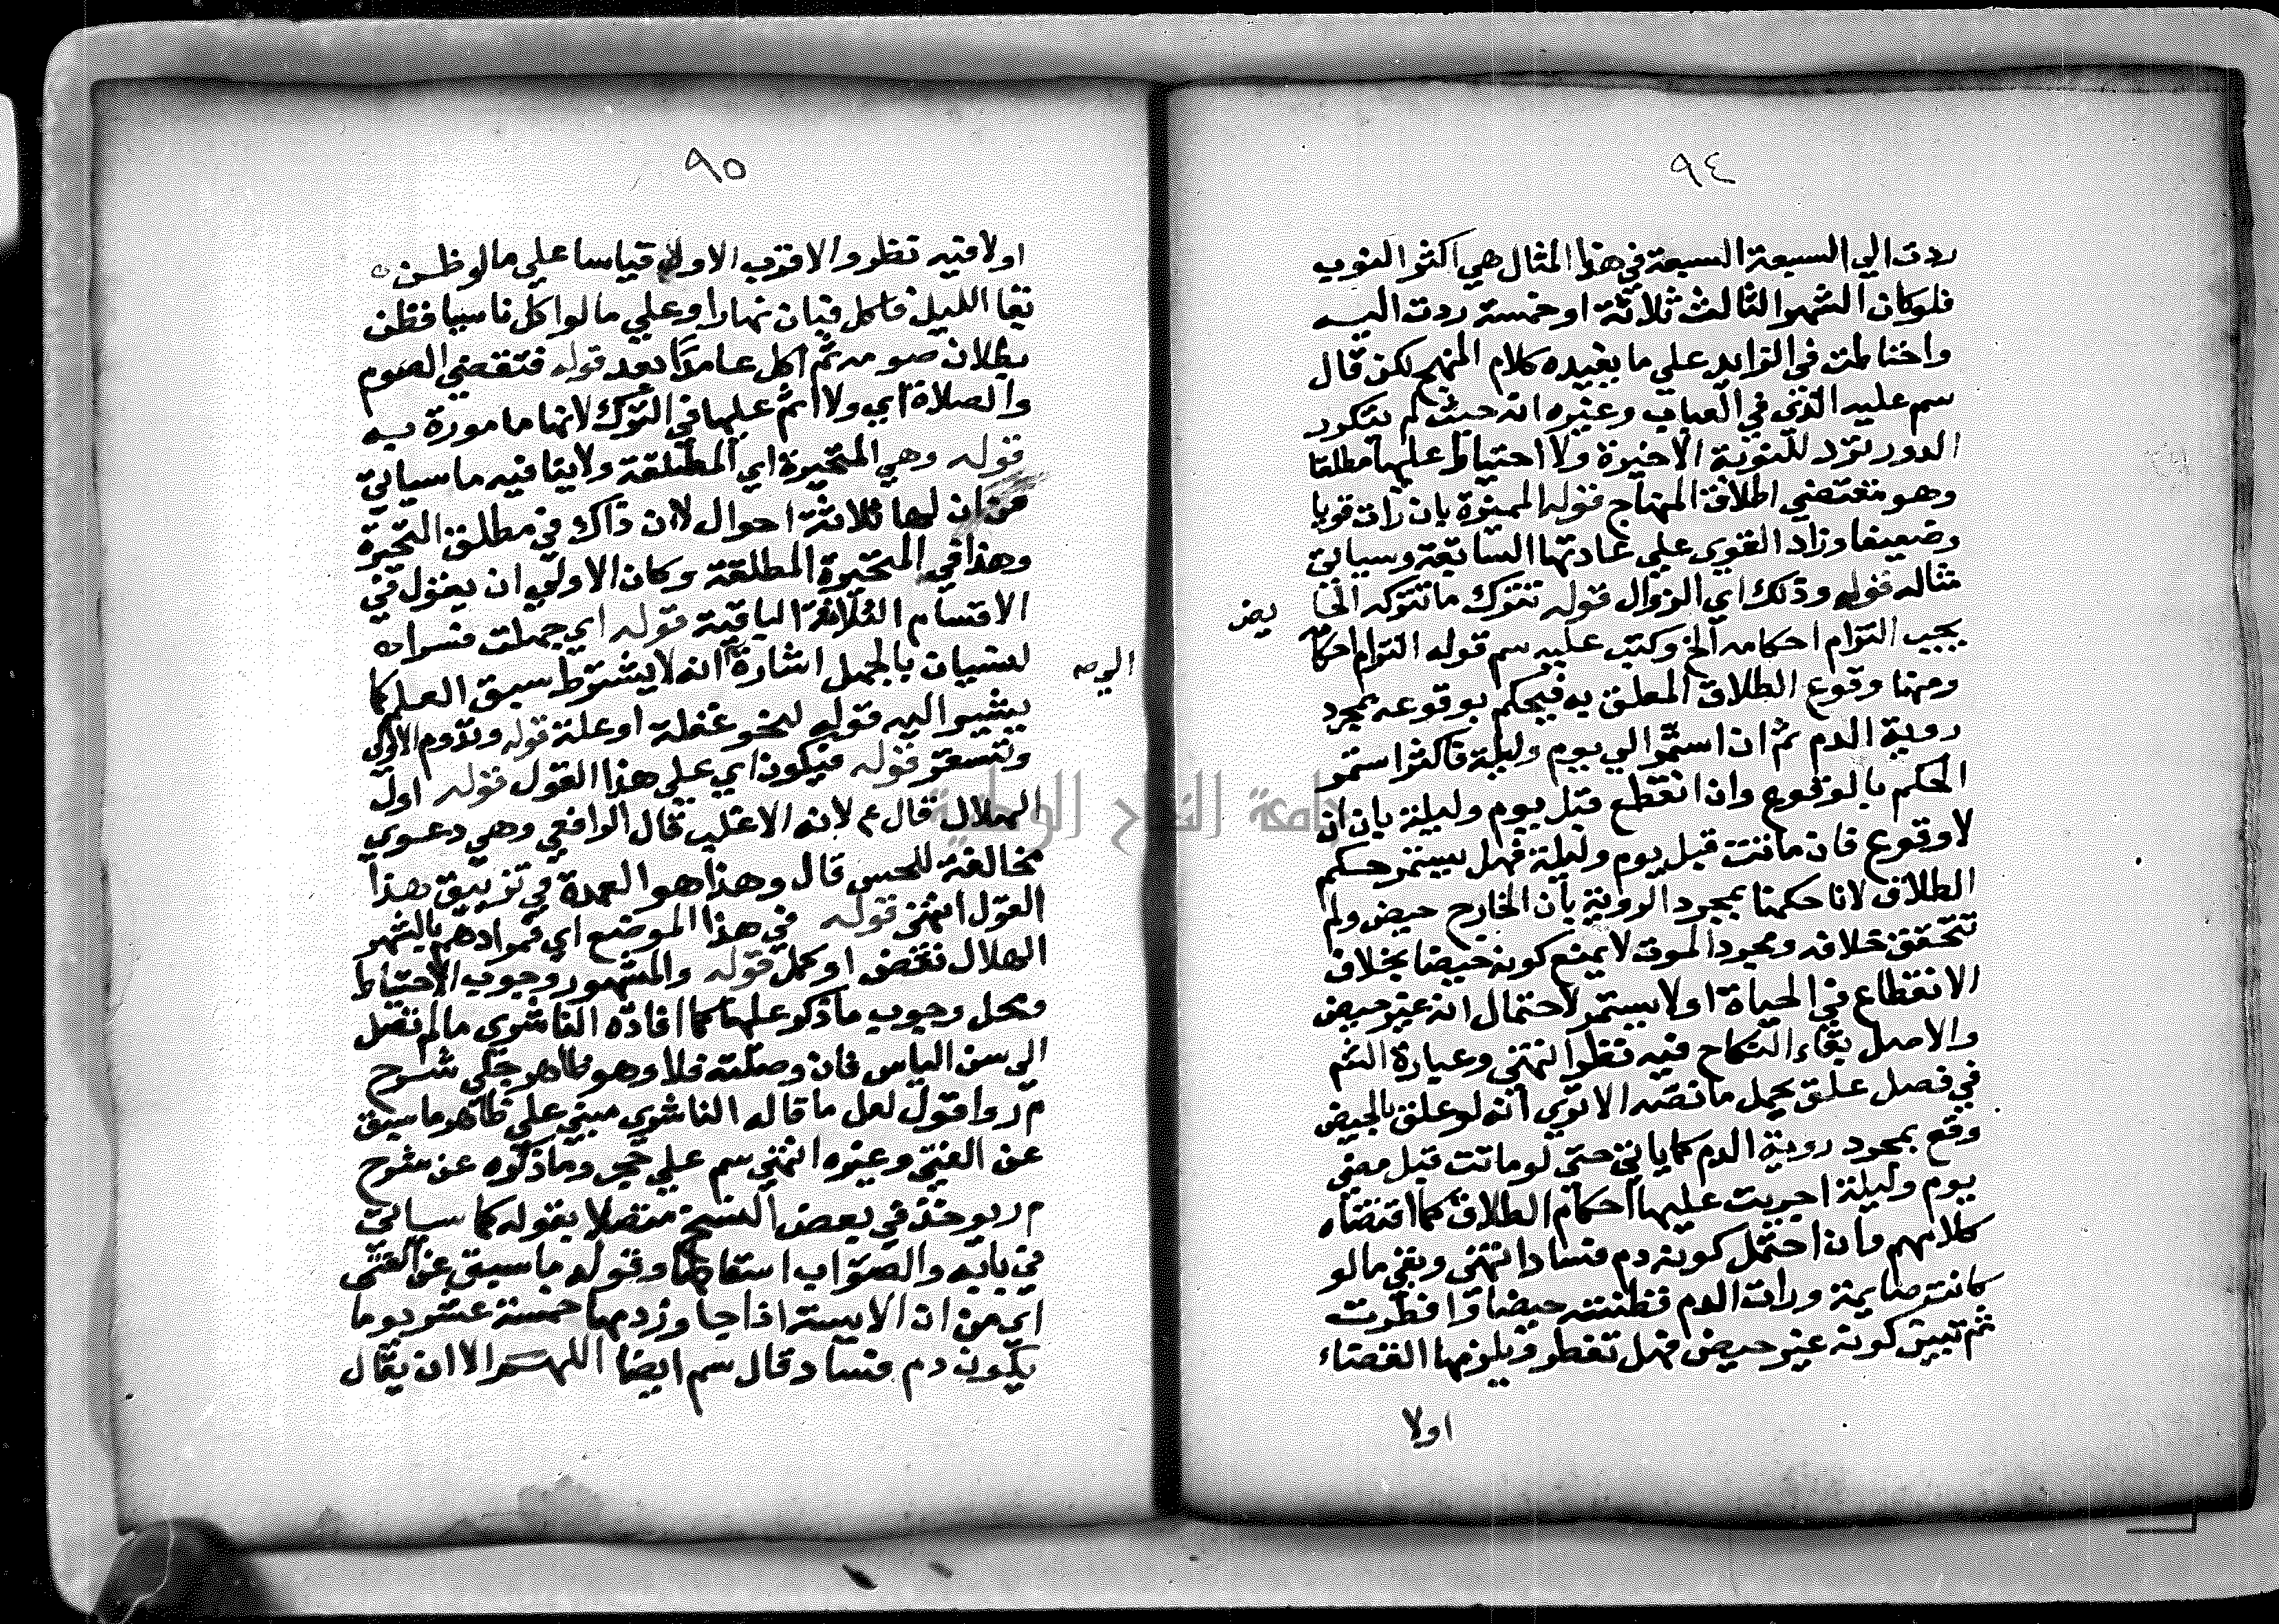 ٩٤
ردت الي السبعة السبعة في هذا المثال هي اكثر النوب
فلو كان الشهر الثالث ثلاثة او خمسة ردت اليه
واحتاطت في الزايد علي ما يفيده كلام المنهج لكن قال
سم عليه الذي في العباب وغيره انه حيث لم يتكرر
الدور ترد للنوبة الاخيرة ولا احتياط عليها مطلقا
وهو مقتضي اطلاق المنهاج قوله المميزة بان رات قويا
وضعيفا وزاد القوي علي عادتها السابقة وسياتي
مثاله قوله وذلك اي الزوال قوله تترك ما تتركه الحا يض
يجب التزام احكامه الخ وكتب عليه سم قوله التزام احكامه
ومنها وقوع الطلاق المعلق به فيحكم بوقوعه بمجرد
روية الدم ثم ان استمر الي يوم وليلة فاكثر استمر
الحكم بالوقوع وان انقطع قبل يوم وليلة بان ان
لا وقوع فان ماتت قبل يوم وليلة فهل يستمر حكم
الطلاق لانا حكمنا بمجرد الروية بان الخارج حيض ولم
تتحقق خلافه ومجرد الموت لا يمنع كونه حيضا بخلاف
الانقطاع في الحياة او لا يستمر لاحتمال انه غير حيض
والاصل بقاء النكاح فيه نظر انتهي وعبارة الشم
في فصل علق بحمل ما نصه الا تري انه لو علق بالحيض
وقع بمجرد روية الدم كما ياتي حتي لو ماتت قبل مضي
يوم وليلة اجريت عليها احكام الطلاق كما اقتضاه
كلامهم وان احتمل كونه دم فساد انتهي وبقي ما لو
كانت صايمة ورات الدم فظنته حيضا وافطرت
ثم تبين كونه غير حيض فهل تفطر ويلزمها القضاء
اولا
٩٥
اولا فيه نظر والاقرب الاول قياسا علي ما لو ظن
بقا الليل فاكل فبان نهارا وعلي ما لو اكل ناسيا فظن
بطلان صومه ثم اكل عامدا بعد قوله فتقضي الصوم
والصلاة اي ولا اثم عليها في الترك لانها مامورة به
قوله وهي المتحيرة اي المطلقة ولا ينافيه ما سياتي
من ان لها ثلاثة احوال لان ذاك في مطلق التحيرة
وهذا في المتحيرة المطلقة وكان الاولي ان يقول في
الاقسام الثلاثة الباقية قوله اي جهلت فسر
النسيان بالجهل اشارة الي انه لا يشترط سبق العلم كما
يشير اليه قوله لنحو غفلة او علة قوله وتدوم الاولي
ولتسعة قوله فيكون اي علي هذا القول قوله اول
الهلال قال ع لانه الاغلب قال الرافعي وهي دعوي
مخالفة للحس قال وهذا هو العمدة في تزييق هذا
القول انتهي قوله في هذا الموضع اي فمرادهم بالشهر
الهلال نقص او كمل قوله والمشهور وجوب الاحتياط
ومحل وجوب ما ذكر عليها كما افاده الناشري ما لم تصل
الي سن الياس فان وصلته فلا وهو ظاهر جلي شرح
م ر واقول لعل ما قاله الناشري مبني علي ظاهر ما سبق
عن الفتي وغيره انتهي سم علي حجر وما ذكره عن شرح
م ر يوجد في بعض النسخ متصلا بقوله كما سياتي
في بابه والصواب اسقاطها وقوله ما سبق عن الفتي
اي من ان الايسة اذا جاوز دمها خمسة عشر يوما
يكون دم فساد قال سم ايضا اللهم الا ان يقال